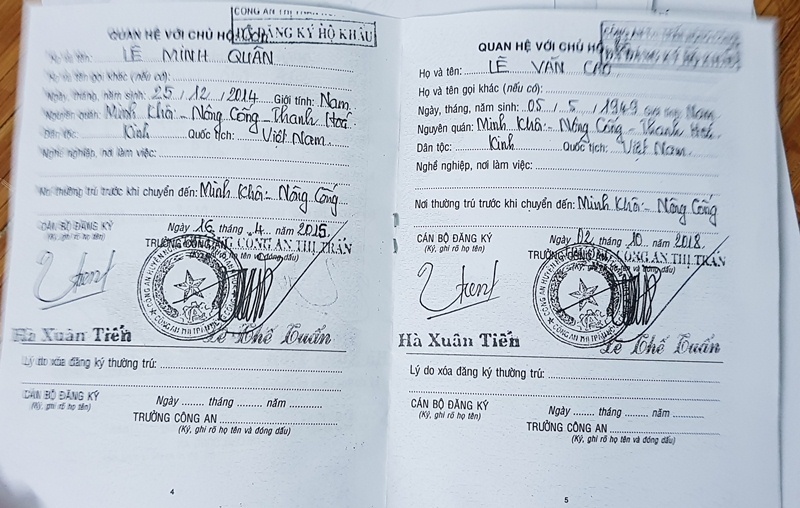 CÔNG AN THỊ TRẤN
ĐĂNG KÝ HỘ KHẨU
QUAN HỆ VỚI CHỦ HỘ
Họ và tên: LÊ MINH QUÂN
Họ và tên gọi khác (nếu có):
Ngày, tháng, năm sinh: 25 / 12 / 2014 Giới tính: Nam
Nguyên quán: Minh Khôi - Nông Cống - Thanh Hoá
Dân tộc: Kinh Quốc tịch: Việt Nam
Nghề nghiệp, nơi làm việc:
Nơi thường trú trước khi chuyển đến: Minh Khôi - Nông Cống
Ngày 16 tháng 4 năm 2015
CÁN BỘ ĐĂNG KÝ
(Ký, ghi rõ họ tên)
TRƯỞNG CÔNG AN CÔNG AN THỊ TRẤN
Hà Xuân Tiến Lê Thế Tuấn
Lý do xóa đăng ký thường trú:
CÁN BỘ ĐĂNG KÝ
(Ký, ghi rõ họ tên)
Ngày ........ tháng ........ năm ........
TRƯỞNG CÔNG AN
(Ký, ghi rõ họ tên và đóng dấu)
4
QUAN HỆ VỚI CHỦ HỘ
Họ và tên: LÊ VĂN CAO
Họ và tên gọi khác (nếu có):
Ngày, tháng, năm sinh: 05 / 5 / 1949 Giới tính: Nam
Nguyên quán: Minh Khôi - Nông Cống - Thanh Hoá
Dân tộc: Kinh Quốc tịch: Việt Nam
Nghề nghiệp, nơi làm việc:
Nơi thường trú trước khi chuyển đến: Minh Khôi - Nông Cống
Ngày 02 tháng 10 năm 2018
CÁN BỘ ĐĂNG KÝ
(Ký, ghi rõ họ tên)
TRƯỞNG CÔNG AN CÔNG AN THỊ TRẤN
Hà Xuân Tiến Lê Thế Tuấn
Lý do xóa đăng ký thường trú:
CÁN BỘ ĐĂNG KÝ
(Ký, ghi rõ họ tên)
Ngày ........ tháng ........ năm ........
TRƯỞNG CÔNG AN
(Ký, ghi rõ họ tên và đóng dấu)
5